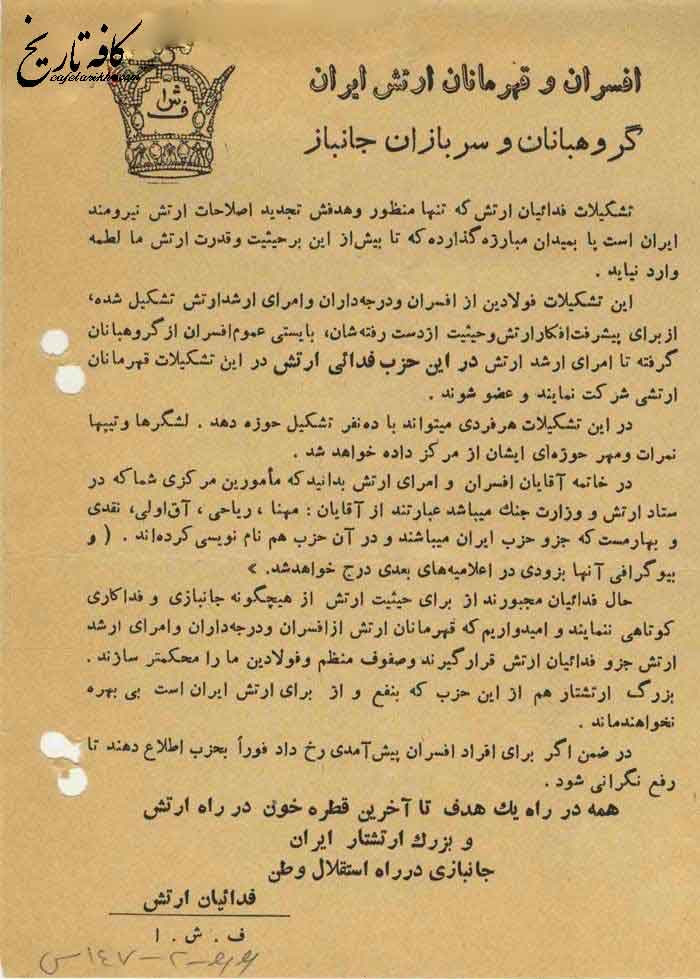 کافه تاریخ
cafetarikh.com
ش ا
ف
افسران و قهرمانان ارتش ایران
گروهبانان و سربازان جانباز
تشکیلات فدائیان ارتش که تنها منظور وهدفش تجدید اصلاحات ارتش نیرومند
ایران است پا بمیدان مبارزه گذارده که تا بیش از این برحیثیت وقدرت ارتش ما لطمه
وارد نیاید .
این تشکیلات فولادین از افسران ودرجه‌داران وامرای ارشدارتش تشکیل شده،
از برای پیشرفت افکار ارتش وحیثیت ازدست رفته‌شان، بایستی عموم افسران از گروهبانان
گرفته تا امرای ارشد ارتش در این حزب فدائی ارتش در این تشکیلات قهرمانان
ارتشی شرکت نمایند و عضو شوند .
در این تشکیلات هرفردی میتواند با ده‌نفر تشکیل حوزه دهد . لشگرها وتیپها
نمرات ومهر حوزه‌ای ایشان از مرکز داده خواهد شد .
در خاتمه آقایان افسران و امرای ارتش بدانید که مأمورین مرکزی شما که در
ستاد ارتش و وزارت جنك میباشد عبارتند از آقایان : مهنا ، ریاحی ، آق‌اولی، نقدی
و بهارمست که جزو حزب ایران میباشند و در آن حزب هم نام نویسی کرده‌اند . ( و
بیوگرافی آنها بزودی در اعلامیه‌های بعدی درج خواهدشد. »
حال فدائیان مجبورند از برای حیثیت ارتش از هیچگونه جانبازی و فداکاری
کوتاهی ننمایند و امیدواریم که قهرمانان ارتش ازافسران ودرجه‌داران وامرای ارشد
ارتش جزو فدائیان ارتش قرارگیرند وصفوف منظم وفولادین ما را محکمتر سازند .
بزرگ ارتشتار هم از این حزب که بنفع و از برای ارتش ایران است بی بهره
نخواهندماند .
در ضمن اگر برای افراد افسران پیش‌آمدی رخ داد فوراً بحزب اطلاع دهند تا
رفع نگرانی شود .
همه در راه یك هدف تا آخرین قطره خون در راه ارتش
و بزرك ارتشتار ایران
جانبازی درراه استقلال وطن
فدائیان ارتش
ف . ش . ا